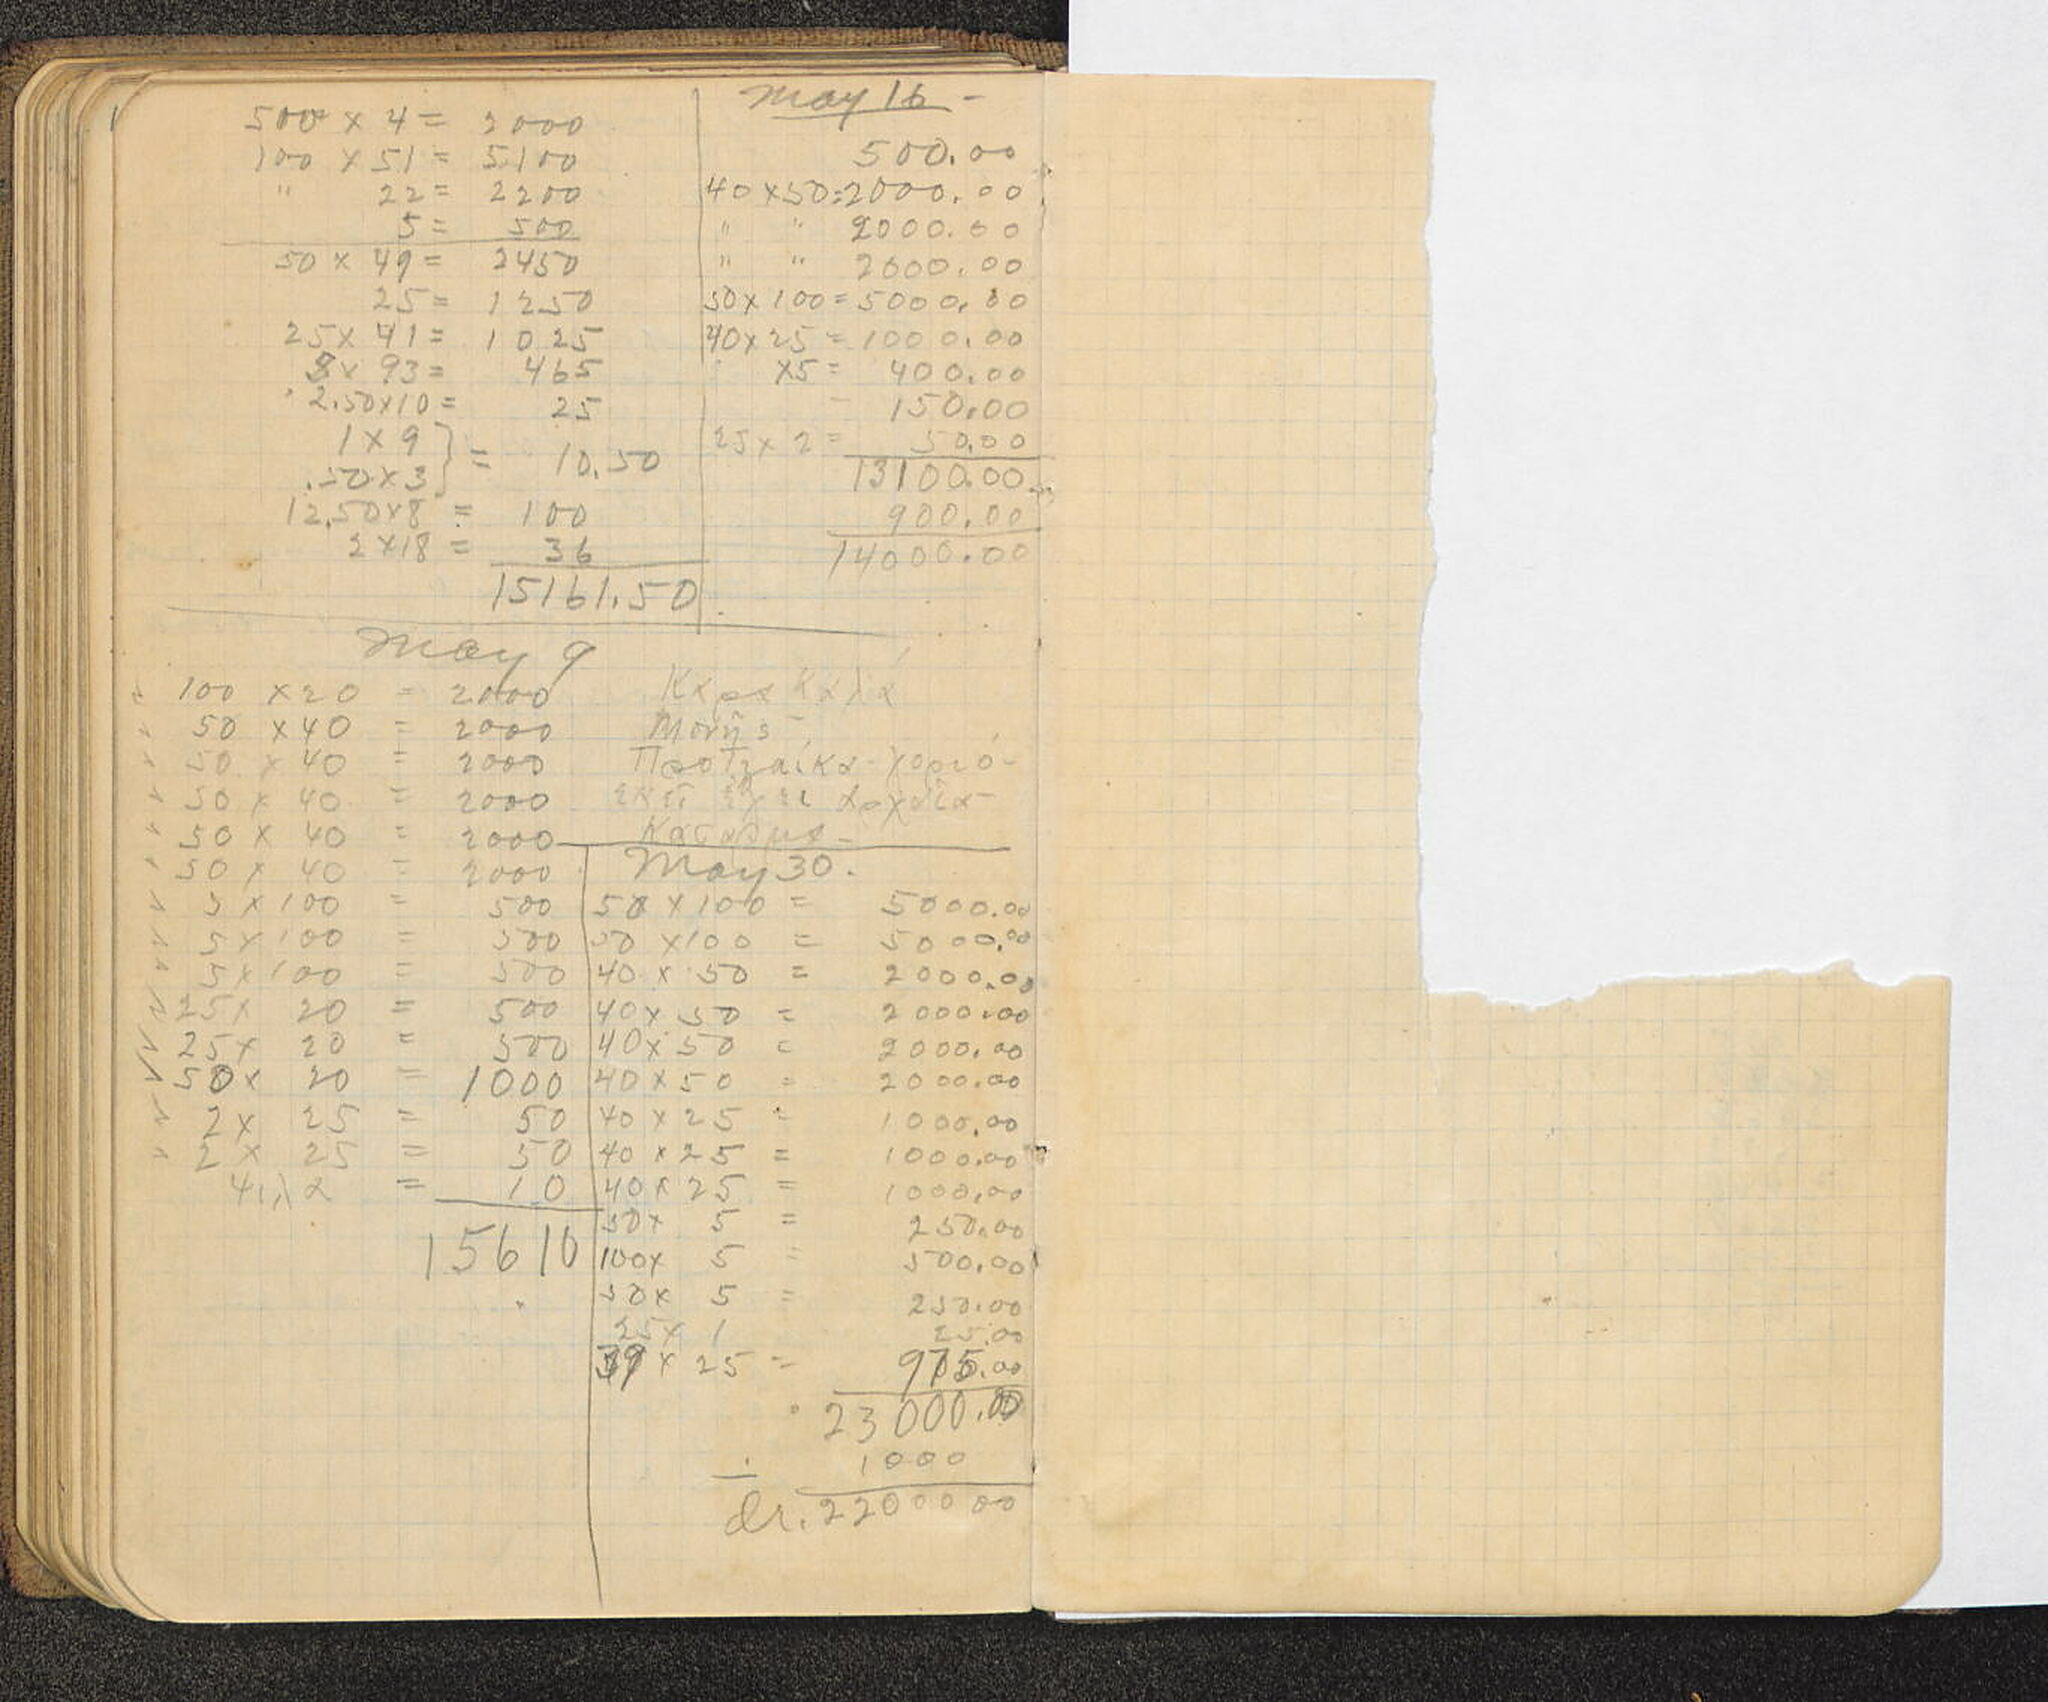 500 x 4 = 2000
100 x 51 = 5100
" 22 = 2200
5 = 500
50 x 49 = 2450
25 = 1250
25 x 41 = 1025
5 x 93 = 465
2.50 x 10 = 25
1 x 9
.50 x 3 } = 10.50
12.50 x 8 = 100
2 x 18 = 36
15161.50
May 16 -
500.00
40 x 50 = 2000.00
" " 2000.00
" " 2000.00
50 x 100 = 5000.00
40 x 25 = 1000.00
x5 = 400.00
- 150.00
25 x 2 = 50.00
13100.00
900.00
14000.00
May 9
100 x 20 = 2000
50 x 40 = 2000
50 x 40 = 2000
50 x 40 = 2000
50 x 40 = 2000
50 x 40 = 2000
5 x 100 = 500
5 x 100 = 500
5 x 100 = 500
25 x 20 = 500
25 x 20 = 500
50 x 20 = 1000
2 x 25 = 50
2 x 25 = 50
= 10
15610
Καρακαλά
Μονῆς -
ἐκεῖ ἔχει ἀρχαῖα -
May 30.
50 x 100 = 5000.00
50 x 100 = 5000.00
40 x 50 = 2000.00
40 x 50 = 2000.00
40 x 50 = 2000.00
40 x 50 = 2000.00
40 x 25 = 1000.00
40 x 25 = 1000.00
40 x 25 = 1000.00
50 x 5 = 250.00
100 x 5 = 500.00
50 x 5 = 250.00
25 x 1 25.00
39 x 25 = 975.00
23000.00
1000
dr. 22000 00